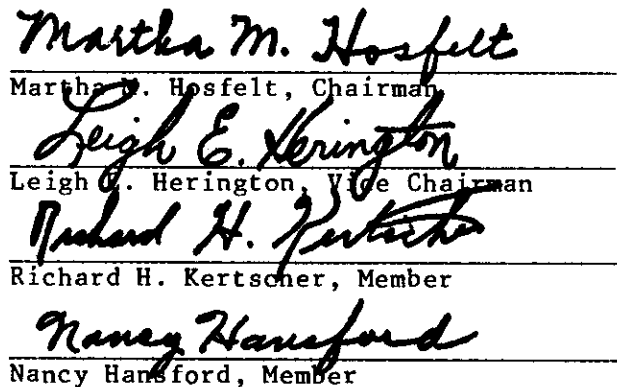 Martha M. Hosfelt
Martha M. Hosfelt, Chairman
Leigh E. Herington
Leigh E. Herington, Vice Chairman
Richard H. Kertscher
Richard H. Kertscher, Member
Nancy Hansford
Nancy Hansford, Member